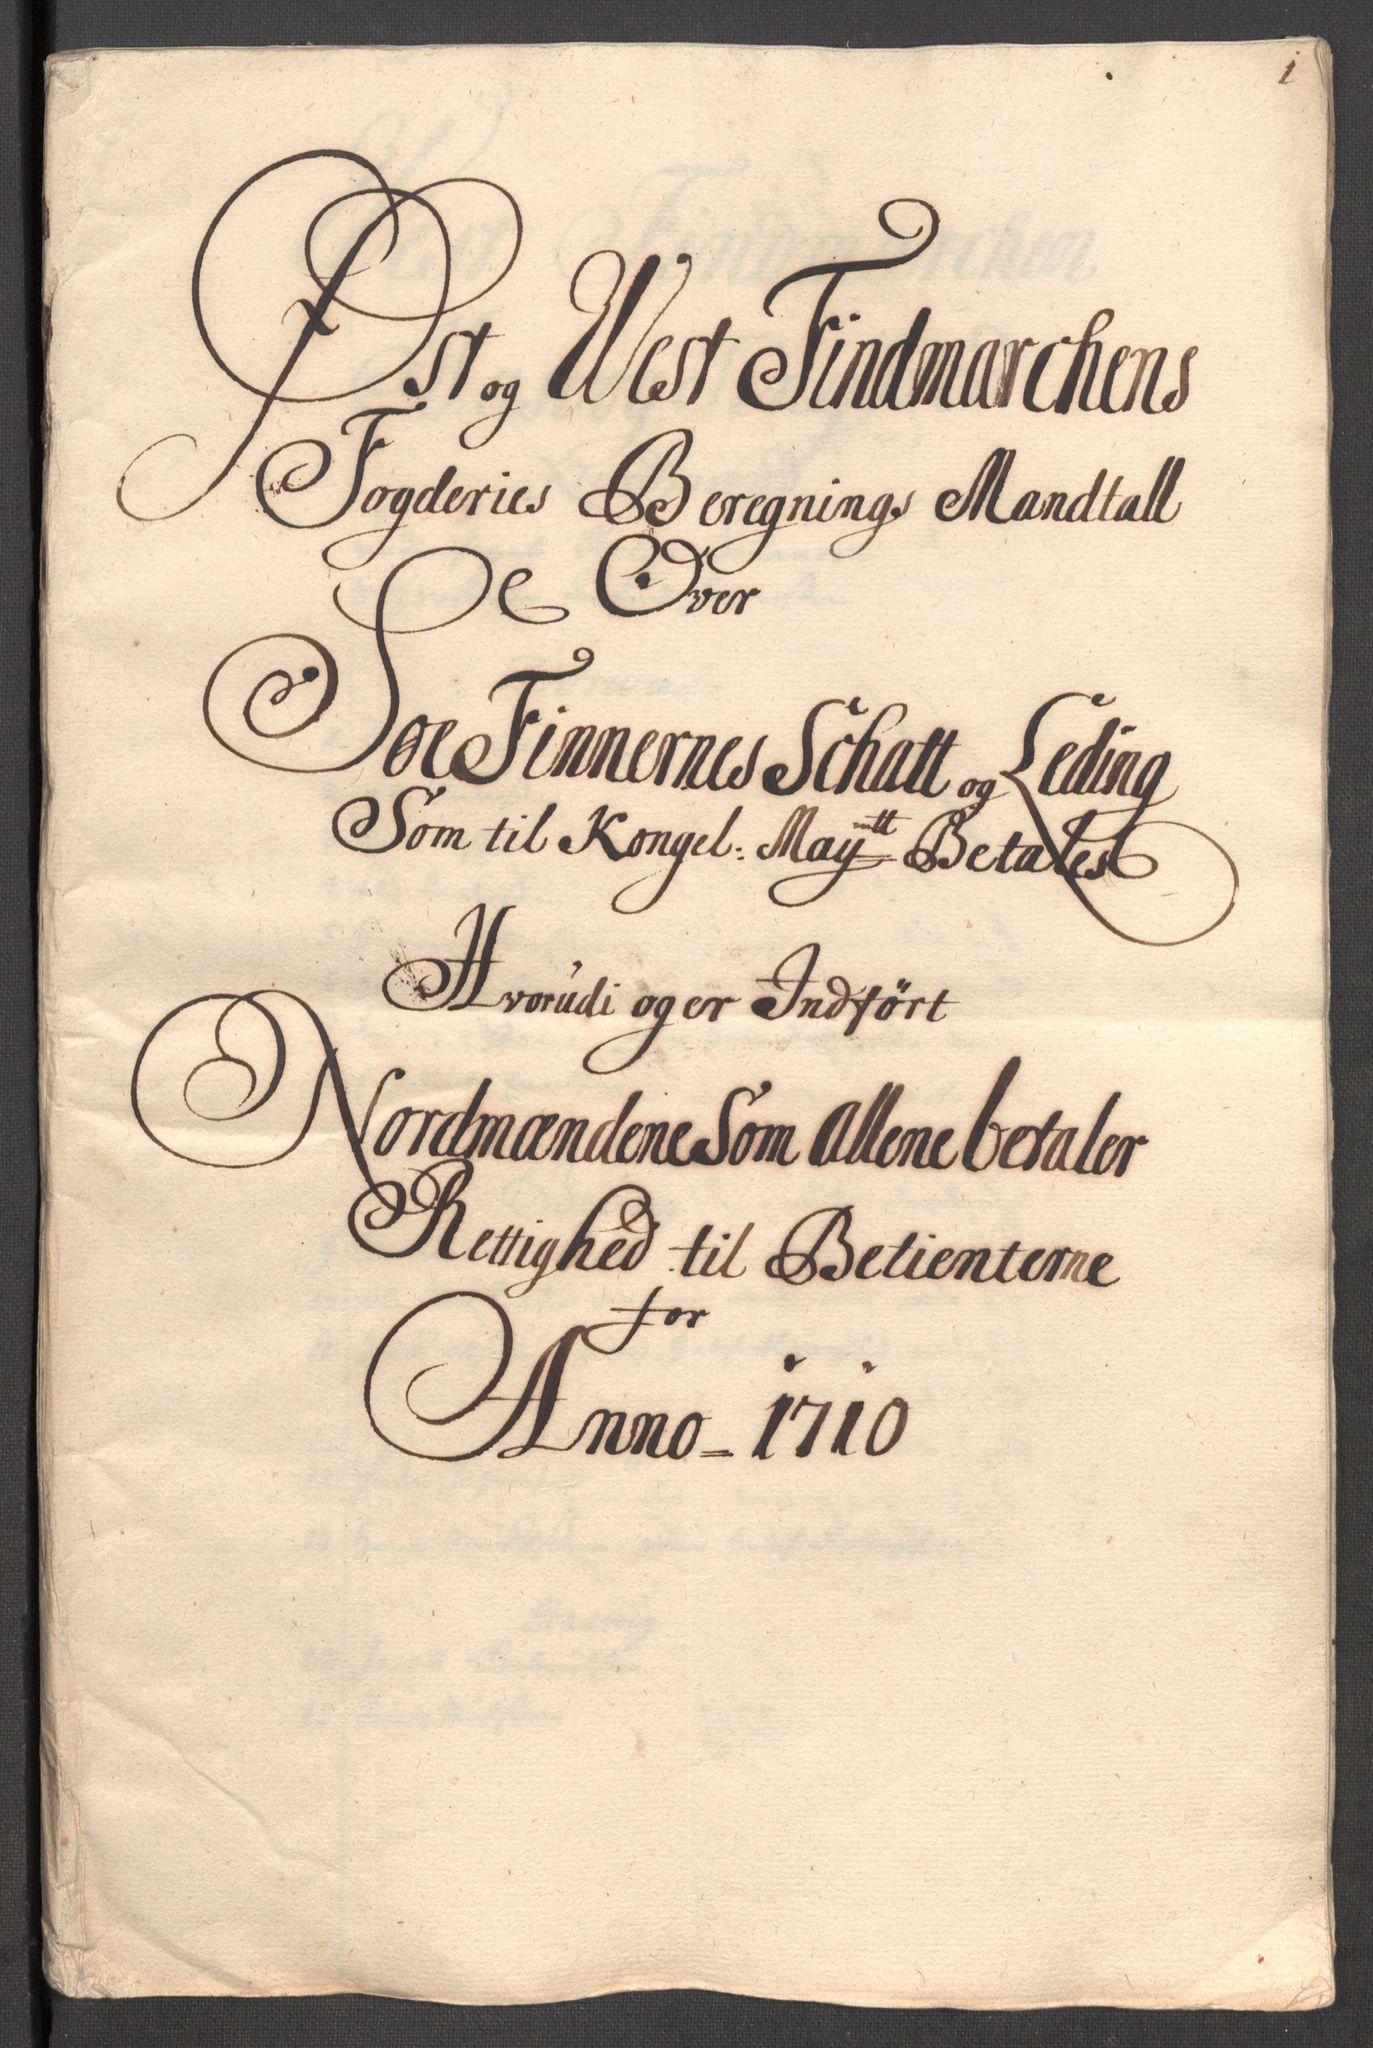 1
Øst og West Findmarchens
Fogderies Beregnings Mandtall
Over
Søe Finnernes Schatt og Leding
Som til Kongel: Maytt Betales
Hvorudi og er Indført
Nordmændene Som allene betaler
Rettighed til Betienterne
for
Anno - 1710